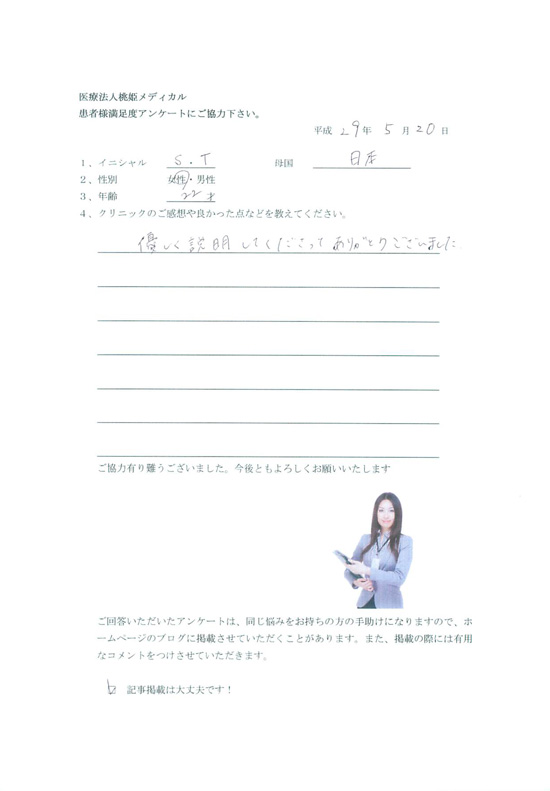 医療法人桃姫メディカル
患者様満足度アンケートにご協力下さい。
平成 29年 5月20日
1、イニシャル S.T 母国 日本
2、性別 女性・男性
3、年齢 22才
4、クリニックのご感想や良かった点などを教えてください。
優しく説明してくださってありがとうございました
ご協力有り難うございました。今後ともよろしくお願いいたします
ご回答いただいたアンケートは、同じ悩みをお持ちの方の手助けになりますので、ホ
ームページのブログに掲載させていただくことがあります。また、掲載の際には有用
なコメントをつけさせていただきます。
記事掲載は大丈夫です！